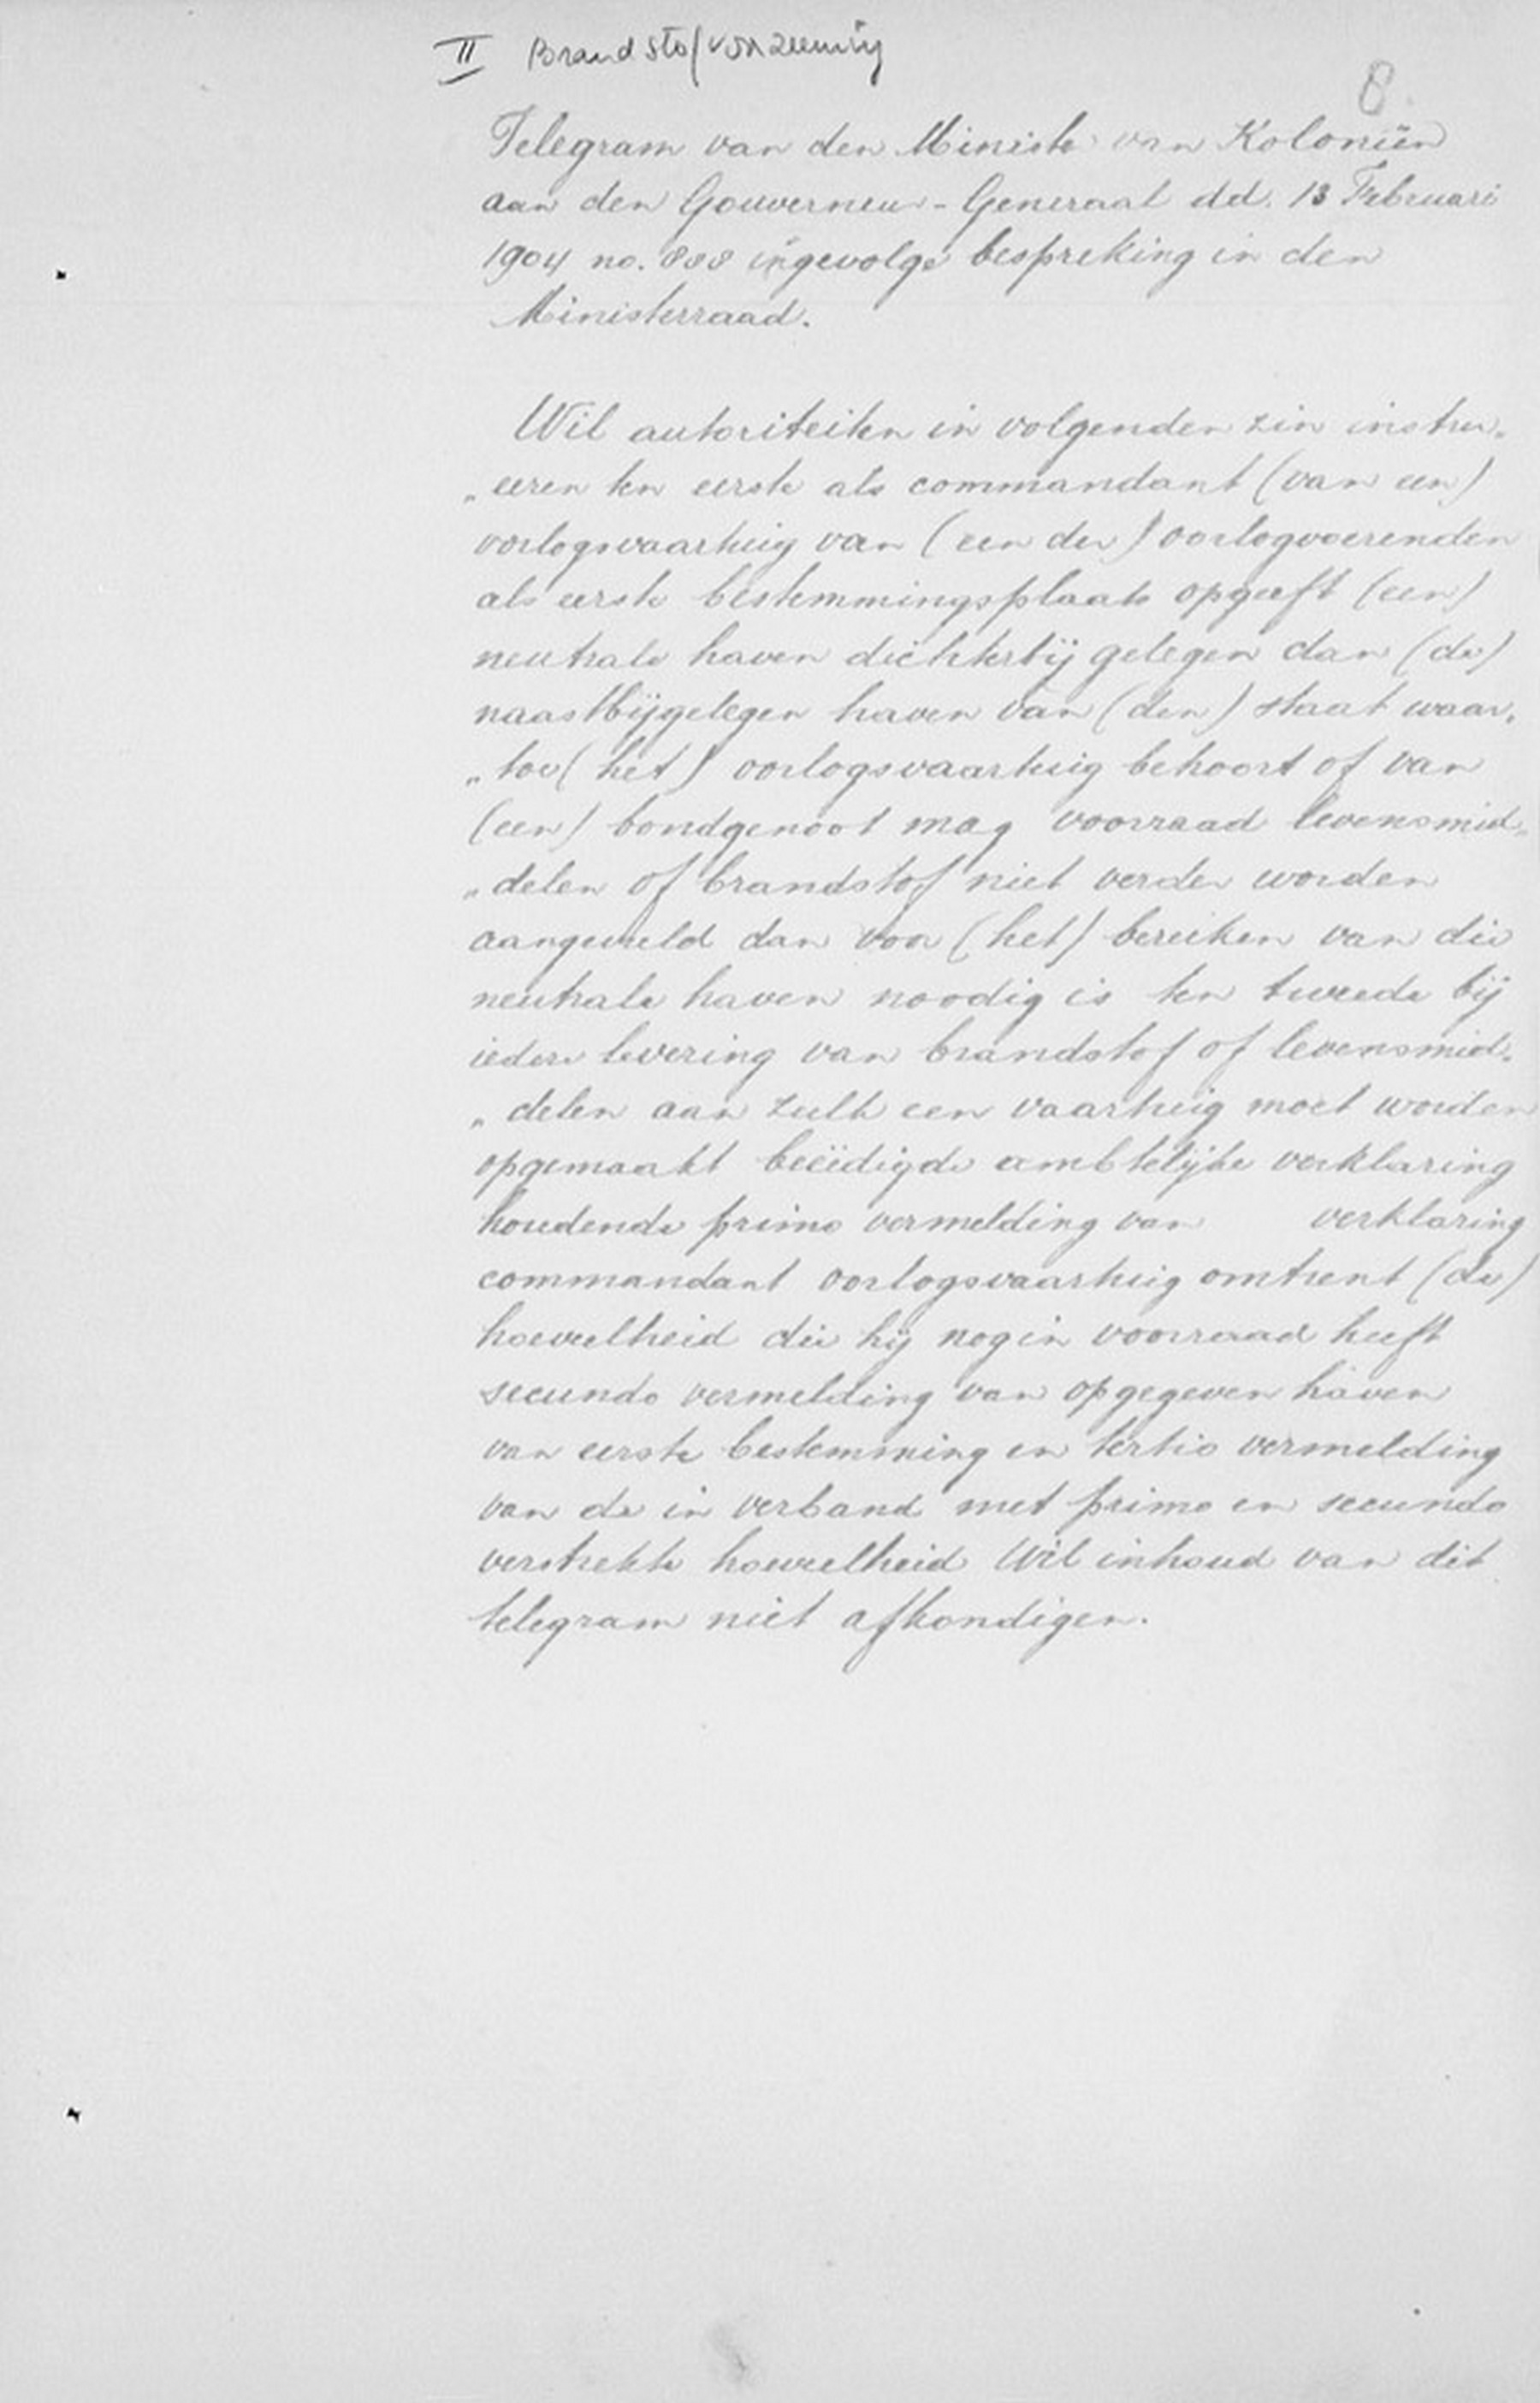 II Brandstofvoorziening
8
Telegram van den Minister van Koloniën
aan den Gouverneur-Generaal dd. 13 Februari
1904 no. 888 ingevolge bespreking in den
Ministerraad.
Wil autoriteiten in volgenden zin instru„
„eeren ten eerste als commandant (van een)
oorlogsvaartuig van (een der) oorlogvoerenden
als eerste bestemmingsplaats opgeeft (een)
neutrale haven dichterbij gelegen dan (de)
naastbijgelegen haven van (den) staat waar„
„toe (het) oorlogsvaartuig behoort of van
(een) bondgenoot mag voorraad levensmid„
„delen of brandstof niet verder worden
aangevuld dan voor (het) bereiken van die
neutrale haven noodig is ten tweede bij
iedere levering van brandstof of levensmid„
„delen aan zulk een vaartuig moet worden
opgemaakt beëedigde ambtelijke verklaring
houdende primo vermelding van verklaring
commandant oorlogsvaartuig omtrent (de)
hoeveelheid die hij nog in voorraad heeft
secundo vermelding van opgegeven haven
van eerste bestemming en tertio vermelding
van de in verband met primo en secundo
verstrekte hoeveelheid Wil inhoud van dit
telegram niet afkondigen.